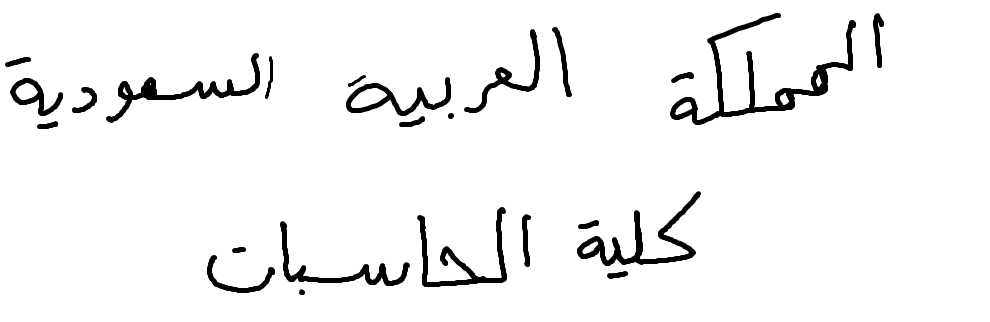 المملكة العربية السعودية
كلية الحاسبات